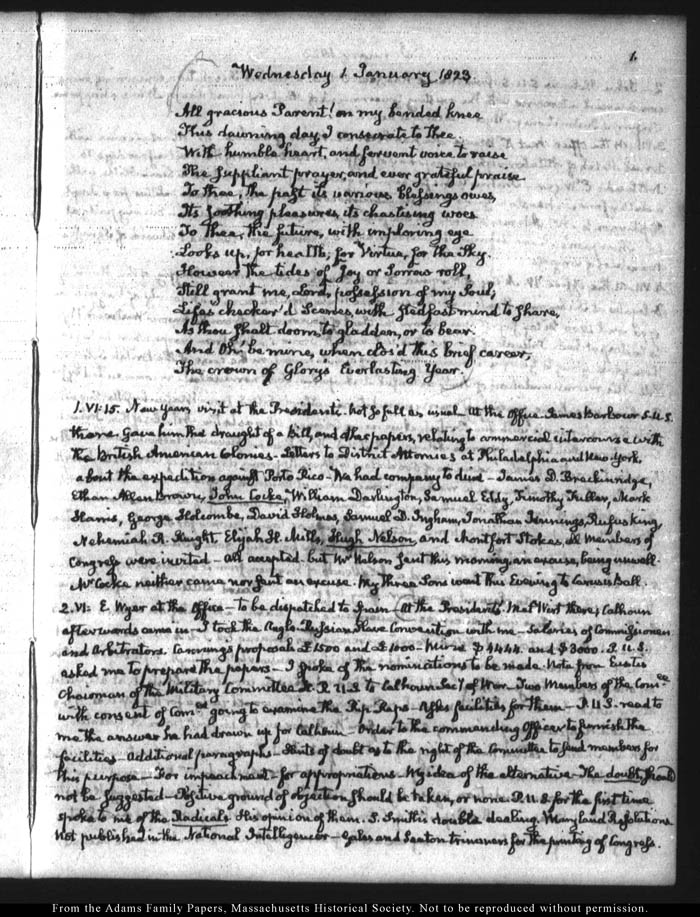 1.
Wednesday 1. January 1823.
All gracious Parent! on my bended knee
This dawning day, I consecrate to thee.
With humble heart, and fervent voice to raise
The suppliant prayer, and ever grateful praise.
To thee, the past its various blessings owes,
Its soothing pleasures, its chastising woes
To thee, the future, with imploring eye
Looks up, for health, for Virtue, for the Sky.
Howe'er the tides of Joy or Sorrow roll,
Still grant me, Lord, possession of my Soul;
Life's checker'd Scenes, with stedfast mind to share,
As thou shalt doom, to gladden, or to bear.
And Oh! be mine, when clos'd this brief career,
The crown of Glory's Everlasting Year.
1. VI:15. New Years visit at the Presidents. not so full as usual. At the Office. James Barbour S.U.S.
there. Gave him the draught of a bill, and other papers, relating to commercial intercourse with
the British American Colonies. Letters to District Attornies at Philadelphia and New-York,
about the expedition against Porto Rico. We had company to dine — James D. Breckinridge,
Ethan Allen Brown, John Cocke, William Darlington, Samuel Eddy, Timothy Fuller, Mark
Harris, George Holcombe, David Holmes, Samuel D. Ingham, Jonathan Jennings, Rufus King
Nehemiah R. Knight, Elijah H. Mills, Hugh Nelson, and Montfort Stokes, all members of
Congress were invited — all accepted. but Mr Nelson sent this morning, an excuse, being unwell.
Mr Cocke neither came nor sent an excuse. My Three Sons went this Evening to Carusi's Ball.
2. VI: E. Wyer at the Office — to be dispatched to Spain — At the Presidents. Met Wirt there; Calhoun
afterwards came in — I took the Anglo-Russian Slave Convention with me — Salaries of Commissioners
and Arbitrators. Cannings proposals £1500 and £1000 — Mine $4444. and $3000. P.U.S.
asked me to prepare the papers — I spoke of the nominations to be made. Note from Eustis
Chairman of the Military Committee H.R.U.S. to Calhoun Secy of War — Two Members of the Comee
with consent of Comee going to examine the Rip Raps — Asks facilities for them — P.U.S. read to
me the answer he had drawn up for Calhoun — Order to the commanding Officer to furnish the
facilities — Additional paragraphs — State of doubt as to the right of the Committee to send members for
this purpose — For impeachment — for appropriations — My idea of the alternative — The doubt should
not be suggested — Positive ground of objection should be taken, or none. P.U.S. for the first time
spoke to me of the Radicals. His opinion of them. S. Smith's double dealing. Maryland Resolutions
not published in the National Intelligencer — Gales and Seaton trimmers for the printing of Congress.
From the Adams Family Papers, Massachusetts Historical Society. Not to be reproduced without permission.